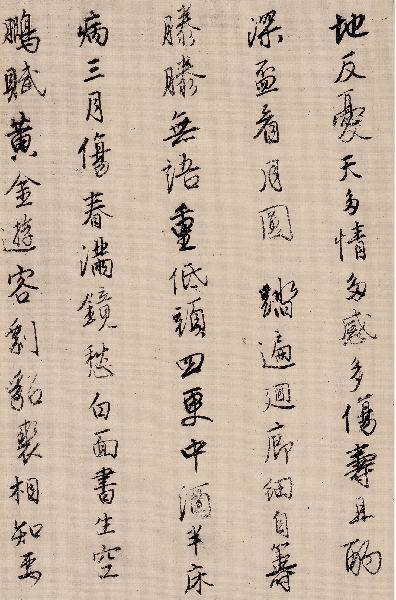 地反憂天多情多感多傷壽且酌
深盃看月圓 踏遍迴廊細自籌
滕滕無語重低頭四更中酒半床
病三月傷春滿鏡愁白面書生空
鵩賦黃金遊客剩貂裘相知